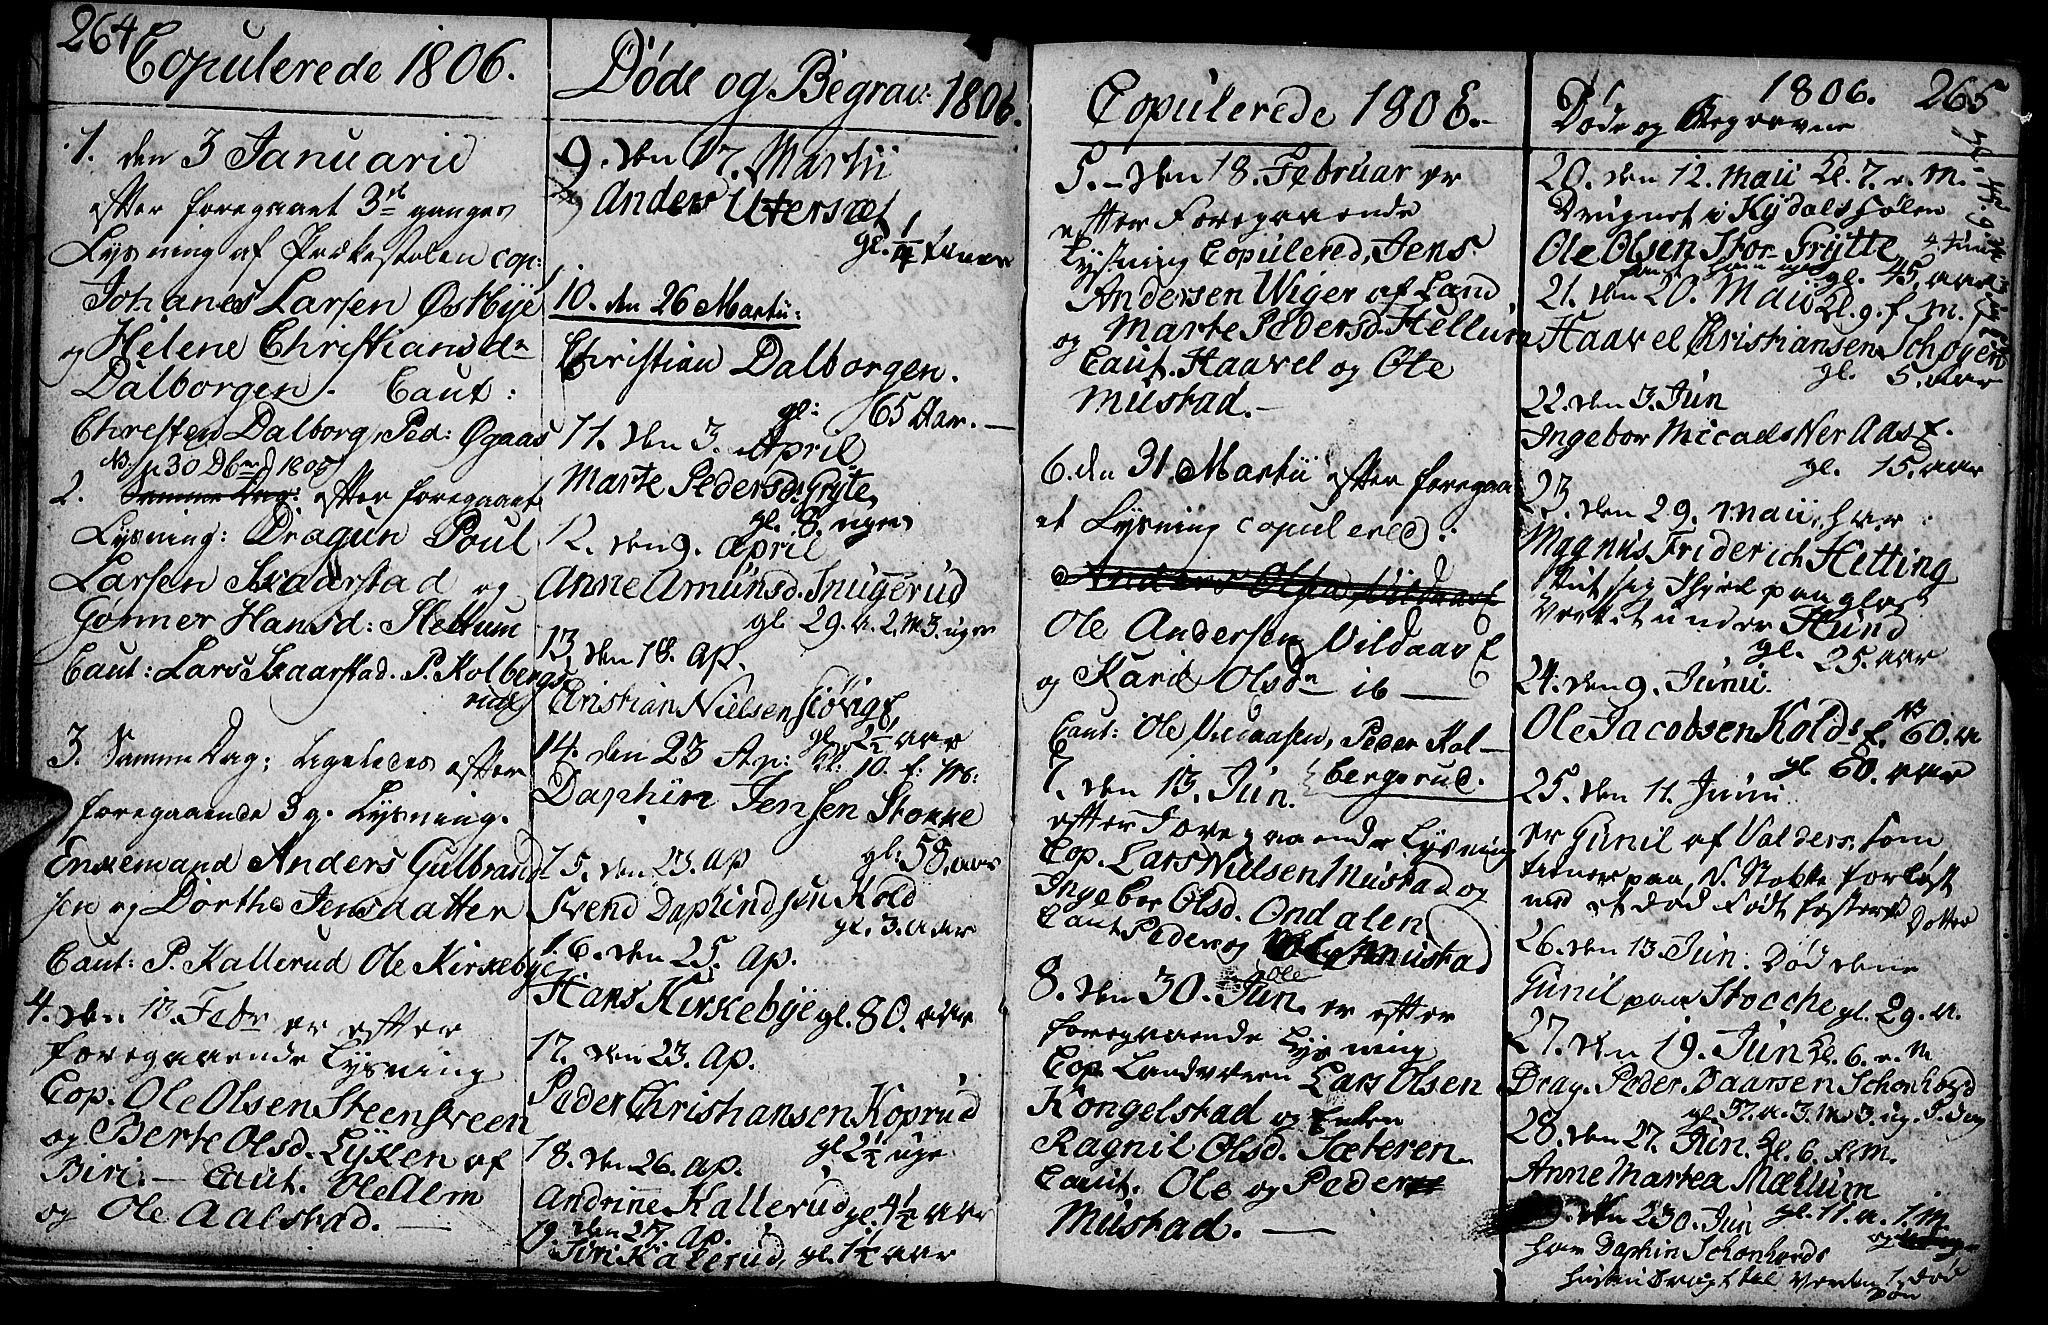 264
Copulerede 1806.
1. den 3 Januarii
efter foregaaet 3de ganges
Lysning af Prækestolen cop:
Johanes Larsen Østbÿe
og Helene Christiansdn
Dalborgen. Caut:
Christen Dalborg, Ped: Øgaas
NB. 30 Dbr 1805
2. Samme Dag: efter foregaaet
Lysning: Dragun Poul
Larsen Svaarstad og
Gunner Hansd: Hellum
Caut: Lars Svaarstad. P. Kolbergs
rud
3. Samme Dag; ligeledes efter
foregaaende 3 g. Lysning.
Enkemand Anders Gulbrand
sen og Dorthe Jensdatter
Caut: P. Kallerud Ole Kirkebye
4. den 13. Febr er efter
foregaaende Lysning
Cop. Ole Olsen Steensveen
og Berte Olsd. Lÿken af
Biri. — Caut. Ole Alm
og Ole Aalstad. —
Døde og Begrav: 1806.
9. den 17. Martii
Anders Utersæt
gl. 1/4 time
10. den 26 Martii:
Christian Dalborgen.
gl: 65 Aar. —
11. den 3. April
Marte Pedersd: Gryte
gl. 8. uger
12. den 9. April
Anne Amunsd. Snugerud
gl 29. A. 2. M. 3. uger
13. den 18. Ap.
Christian Nielsen Giøvig E.
gl. 2 1/2 aar
14. den 23 Ap: kl. 10. f: M:
Daphin Jensen Stokke
gl: 58. aar
15. den 23. Ap
Svend Daphindsøn Kold
gl. 3. aar
16. den 25. Ap.
Hans Kirkebÿe gl. 80. aar
17. den 23. Ap.
Peder Christiansen Koprud
gl 2 1/2 uge
18. den 26. Ap.
Andrine Kallerud gl. 4 1/2 aar
19. den 27. Ap.
Siri Kalerud, gl. 1 1/2 aar
Copulerede 1806.
5. — den 18. Februar er
efter Foregaaende
Lysning Copulered, Jens
Andersen Wiger af Land
og Marte Pedersd. Hellum
Caut. Haavel og Ole
Mustad. —
6. den 31. Martii efter foregaa
et Lysning copulered:
Anders Olsen Vildaas E
Ole Andersen Vildaas E
og Kari Olsdn ib —
Caut: Ole Vildaasen, Peder Kol-
bergsrud.
7. den 13. Jun.
efter Foregaaende Lysning
Cop. Lars Nielsen Mustad og
Ingebor Olsd. Ondalen
Caut Peder og Ole Mustad
Ole
8. den 30. Jun. er efter
foregaaende Lysning
Cop Landværn Lars Olsen
Kongelstad og Enken
Ragnil Olsd. Sæteren
Caut. Ole og Peder
Mustad. —
1806. 265
Døde og Begravne
20. den 12. Maii kl. 7. e. M.
Drugnet i Kydalssølen
Ole Olsen Stor-Grÿtte
gl. 45. aar
21. den 20. Maii kl. 9. f. M.
Haavel Christiansen Schogen
gl. 5. aar
22. den 3. Jun
Ingebor Micaels Ner Aas E.
gl. 15. aar
23. den 29. Maii, har
Magnus Friderich Hetting
skut sig ihiel paa glas
Verket under Hund
gl. 25. aar
24. den 9. Junii
Ole Jacobsen Kolds E. 60. A
gl 60. aar
25. den 11. Junii
er Gunil af Valders, som
tiener paa, N. Stokke forløst
med et død Født foster Dotter
26. den 13. Jun. Død denne
Gunil paa Stocche gl. 29. A.
27. den 19. Jun kl. 6. e. M
Drag. Peder Daarsen Schonhord
gl. 37. a. 3. M. 3. ug. 5. Dag
28. den 27. Jun. kl. 6. f. M.
Anne Martea Mællum
gl. 11. a. 1. M.
den 30. Jun
har Daphin Schonhords
hustru bragt til Verden 1. død
Søn